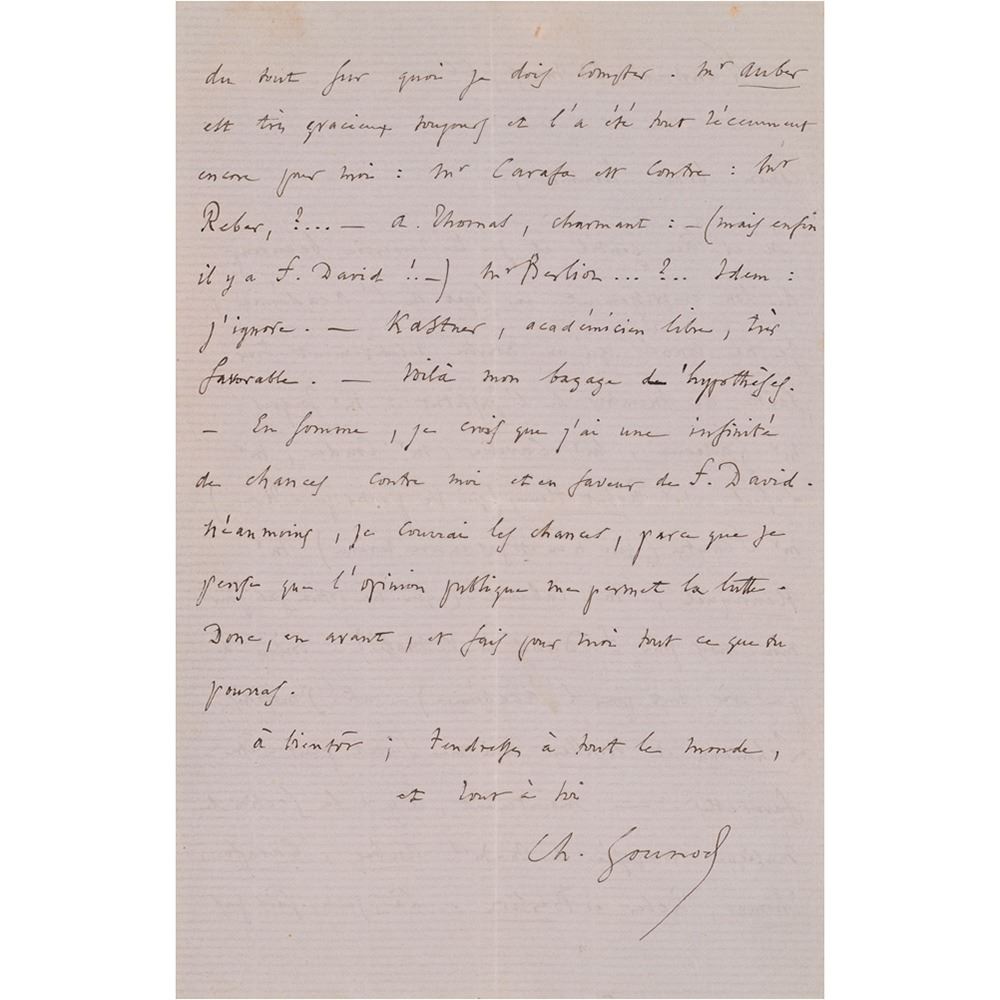 du tout sur quoi je dois compter. Mr Auber
est très gracieux toujours et l'a été tout récemment
encore pour moi : Mr Carafa est contre : Mr
Reber, ?... — A. Thomas, charmant : — (mais enfin
il y a F. David !! —) Mr Berlioz ... ?.. Idem :
j'ignore. — Kastner, académicien libre, très
favorable. — Voilà mon bagage d'hypothèses.
— En somme, je crois que j'ai une infinité
de chances contre moi et en faveur de F. David.
Néanmoins, je courrai les chances, parce que je
pense que l'opinion publique me permet la lutte.
Donc, en avant, et fais pour moi tout ce que tu
pourras.
à bientôt ; tendresses à tout le monde,
et tout à toi
Ch. Gounod